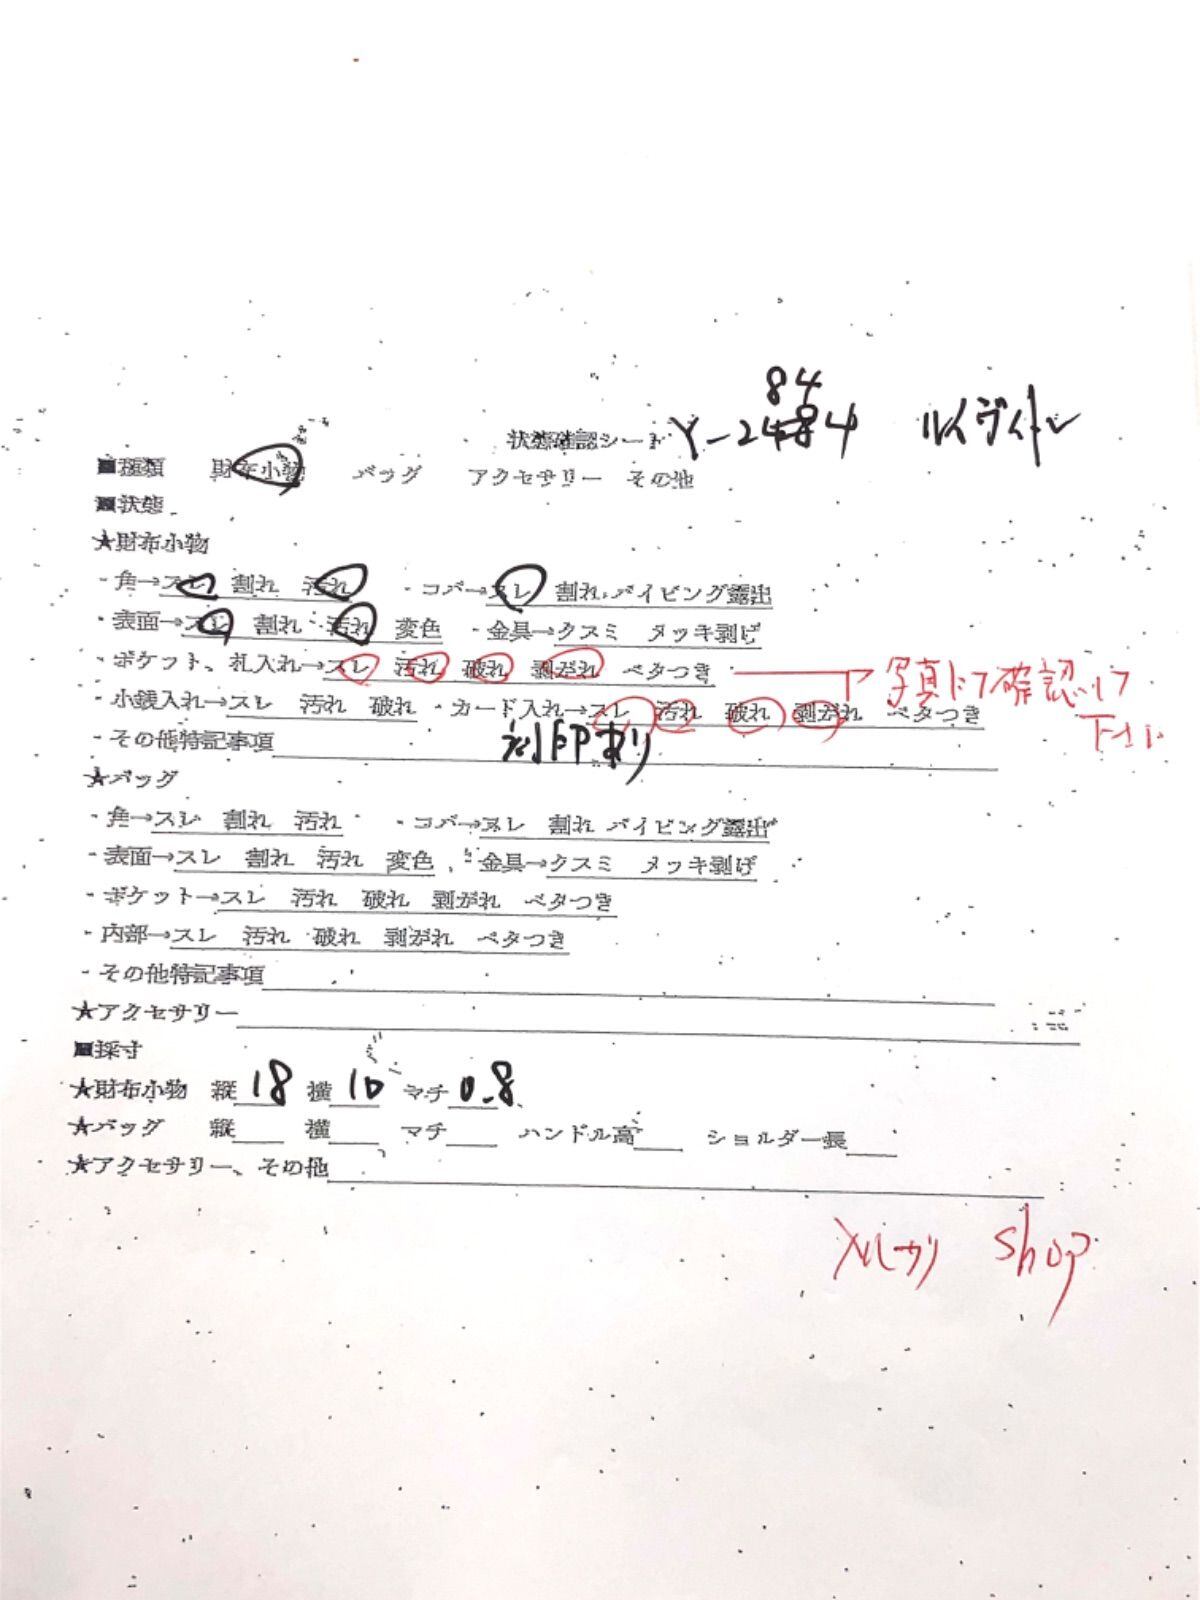 84
状態確認シート Y-2484 ルイヴィトン
■種類 財布小物 バッグ アクセサリー その他
■状態
★財布小物
・角→スレ 割れ 汚れ ・コバ→スレ 割れ パイピング露出
・表面→スレ 割れ 汚れ 変色 ・金具→クスミ メッキ剥げ
・ポケット、札入れ→スレ 汚れ 破れ 剥がれ ベタつき 写真にて確認して
下さい
・小銭入れ→スレ 汚れ 破れ ・カード入れ→スレ 汚れ 破れ 剥がれ ベタつき
・その他特記事項 刻印あり
★バッグ
・角→スレ 割れ 汚れ ・コバ→スレ 割れ パイピング露出
・表面→スレ 割れ 汚れ 変色 ・金具→クスミ メッキ剥げ
・ポケット→スレ 汚れ 破れ 剥がれ ベタつき
・内部→スレ 汚れ 破れ 剥がれ ベタつき
・その他特記事項
★アクセサリー
■採寸
★財布小物 縦 18 横 10 マチ 0.8
★バッグ 縦 横 マチ ハンドル高 ショルダー長
★アクセサリー、その他
メルカリ shop